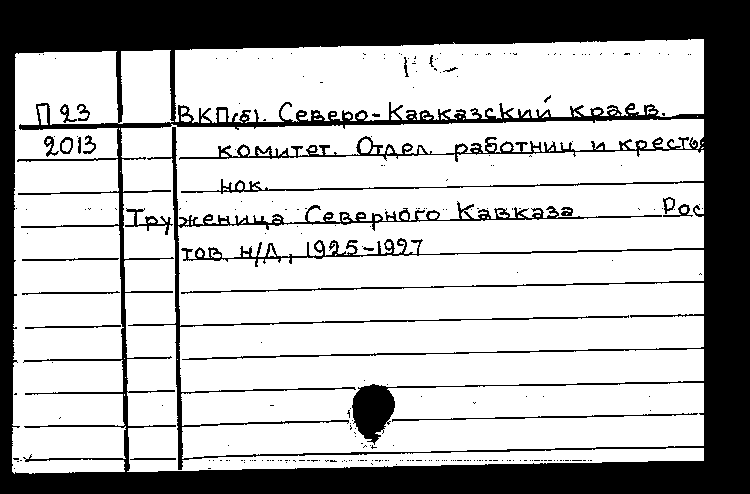 П 23 ВКП(б). Северо-Кавказский краев.
2013 комитет. Отдел работниц и крестья
нок.
Труженица Северного Кавказа Рос
тов н/Д, 1925-1927